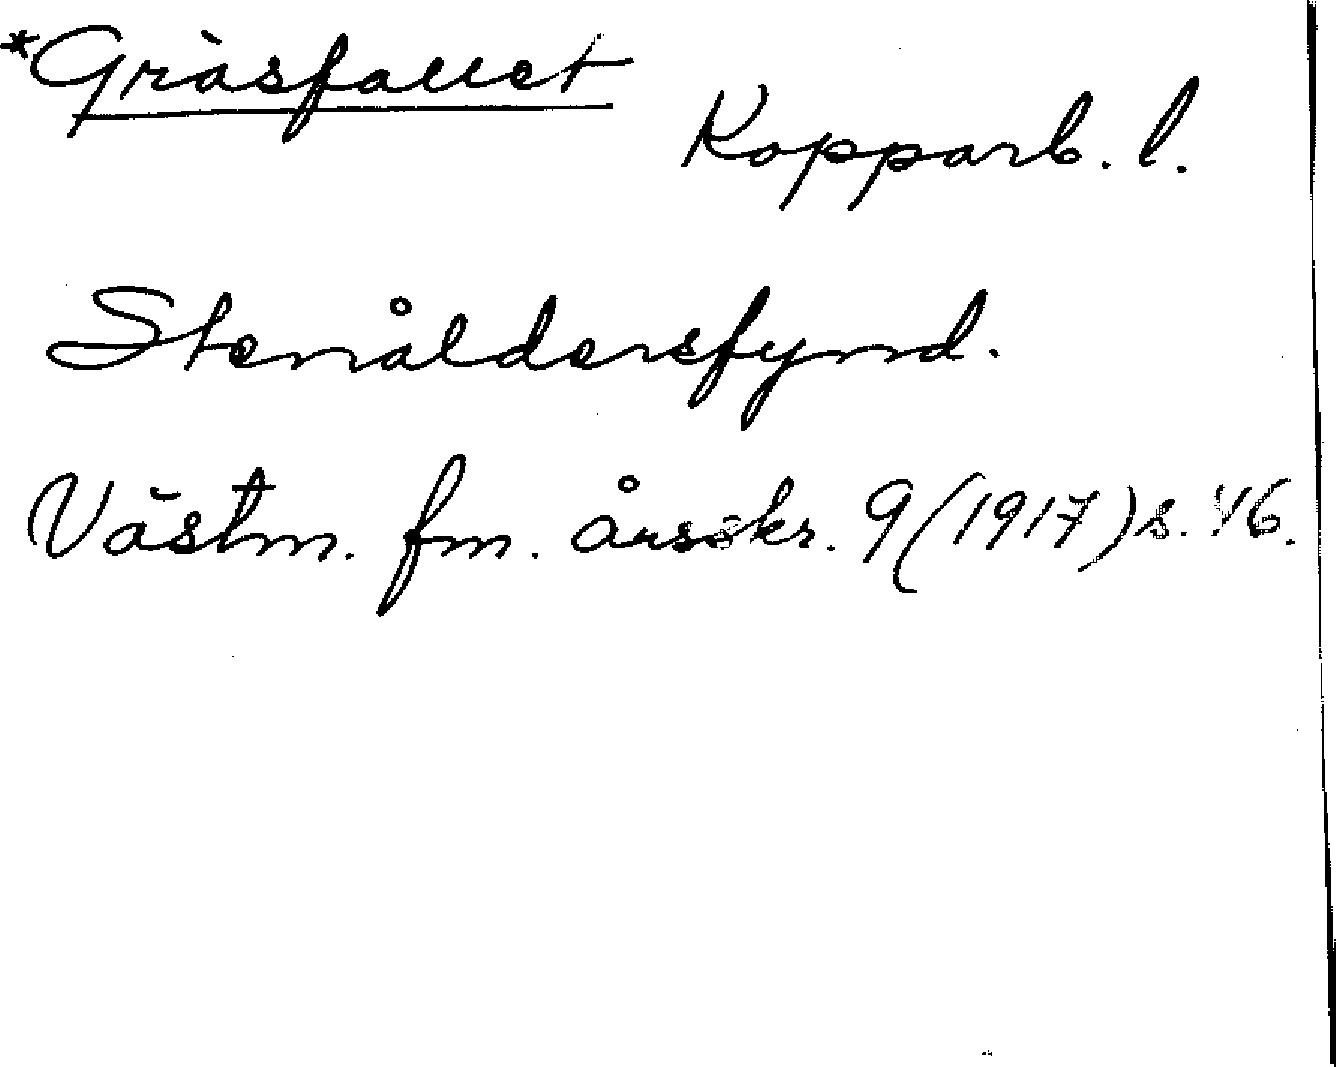 *Gräsfallet
Kopparb. l.
Stenåldersfynd.
Västm. fm. årsskr. 9(1917) s. 46.